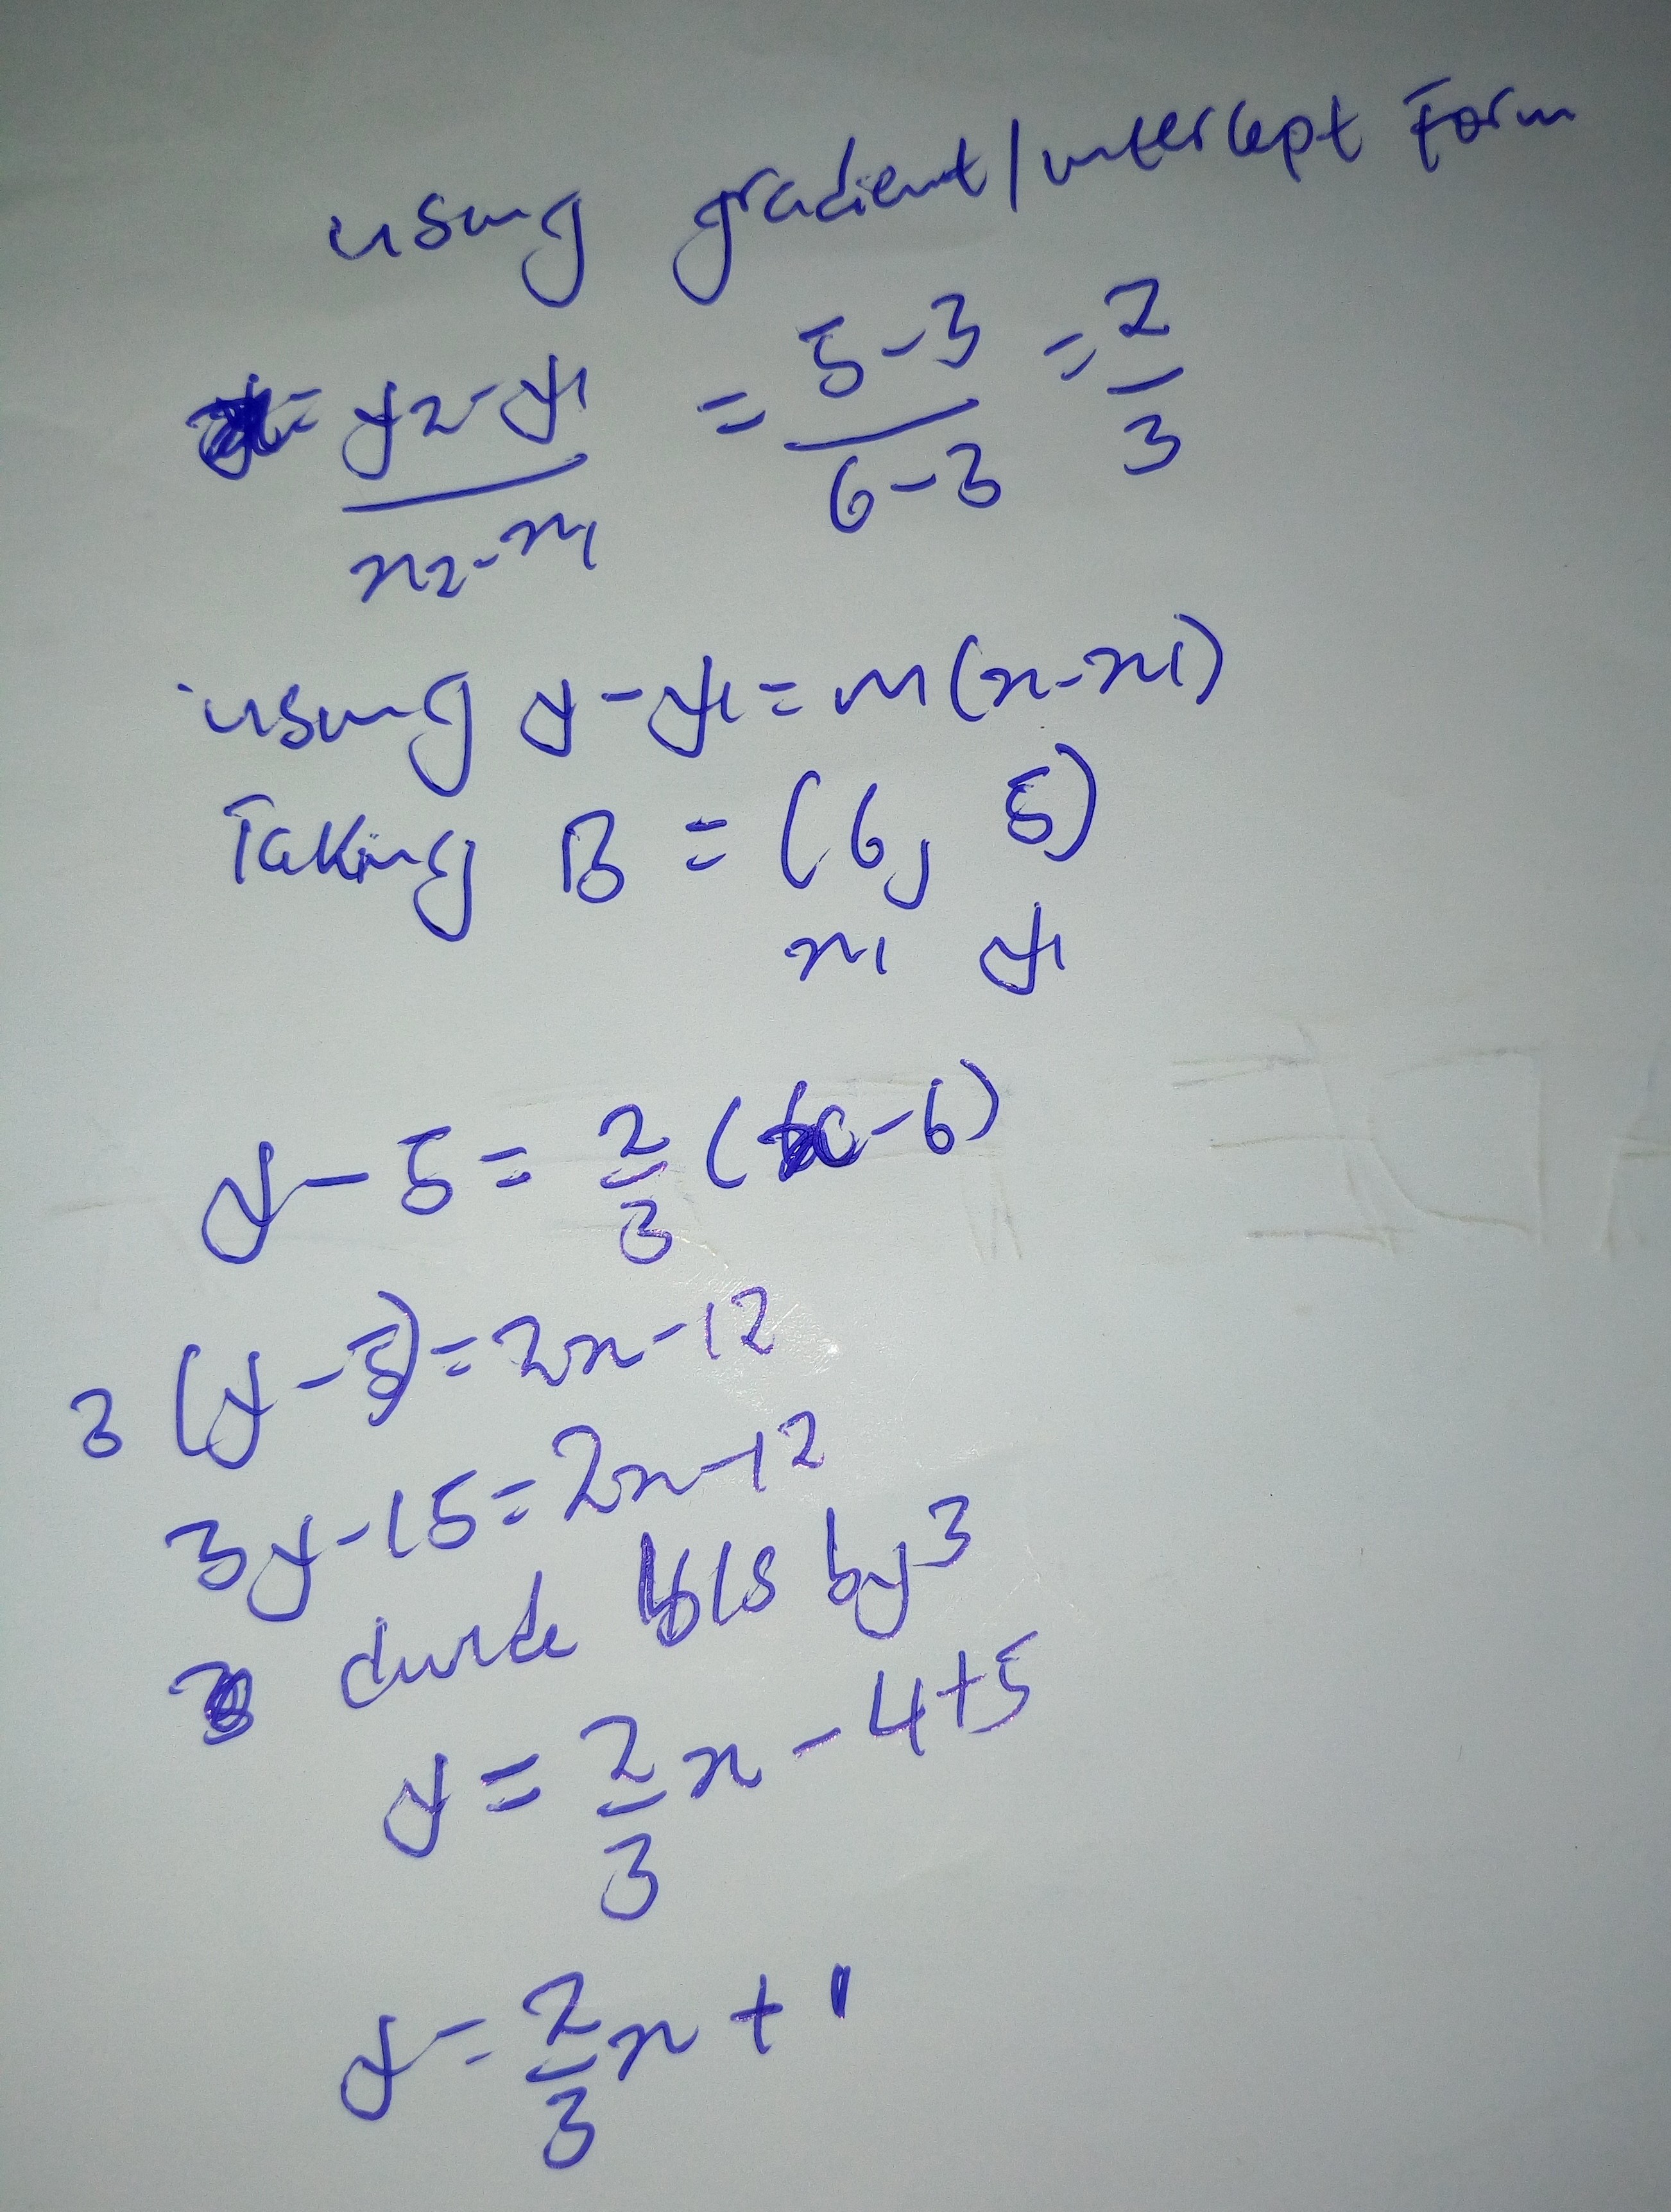 using gradient/intercept Form
= y2-y1 / x2-x1 = 5-3 / 6-3 = 2/3
using y-y1=m(x-x1)
Taking B = (6, 5)
x1 y1
y-5=2/3(x-6)
3(y-5)=2x-12
3y-15=2x-12
divide b/s by 3
y=2/3x-4+5
y=2/3x+1